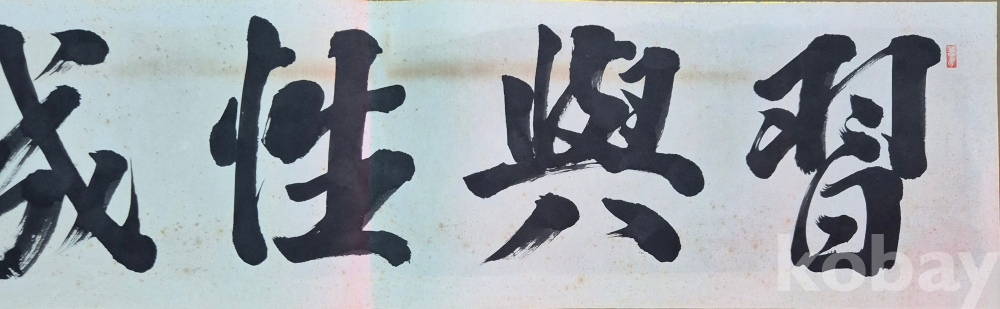 習與性成
kobay